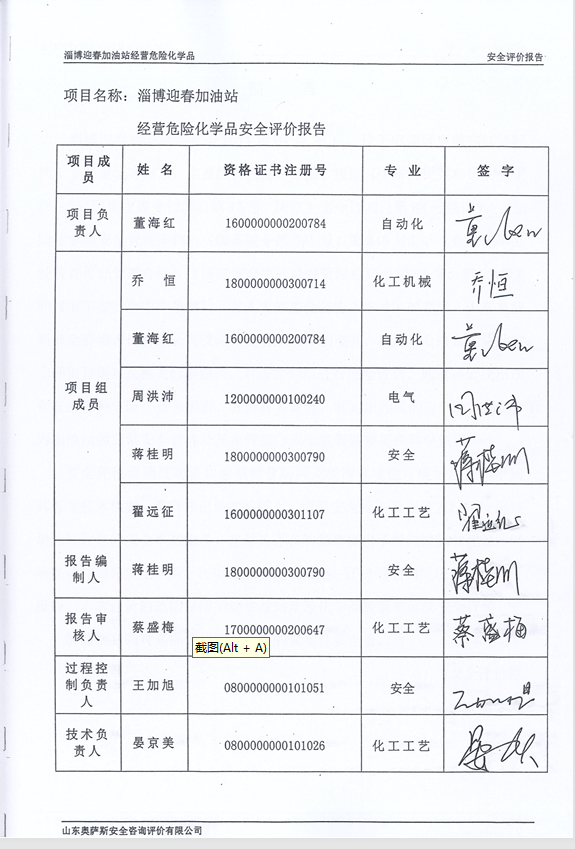 淄博迎春加油站经营危险化学品 安全评价报告
项目名称：淄博迎春加油站
经营危险化学品安全评价报告
项目成员 姓 名 资格证书注册号 专 业 签 字
项目负责人 董海红 1600000000200784 自动化
项目组成员 乔 恒 1800000000300714 化工机械 乔恒
董海红 1600000000200784 自动化
周洪沛 1200000000100240 电气 周洪沛
蒋桂明 1800000000300790 安全 蒋桂明
翟远征 1600000000301107 化工工艺 翟远征
报告编制人 蒋桂明 1800000000300790 安全 蒋桂明
报告审核人 蔡盛梅 1700000000200647 化工工艺 蔡盛梅
截图(Alt + A)
过程控制负责人 王加旭 0800000000101051 安全
技术负责人 晏京美 0800000000101026 化工工艺
山东奥萨斯安全咨询评价有限公司